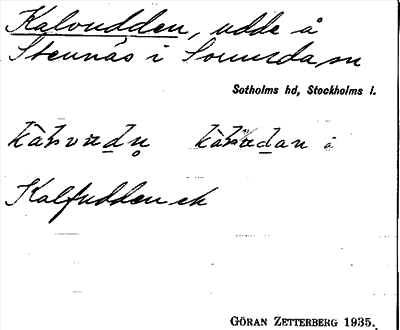 Kalvudden, udde å
Stennäs i Sorunda, sn
Sotholms hd, Stockholms l.
Kalfudden ek
GÖRAN ZETTERBERG 1935.